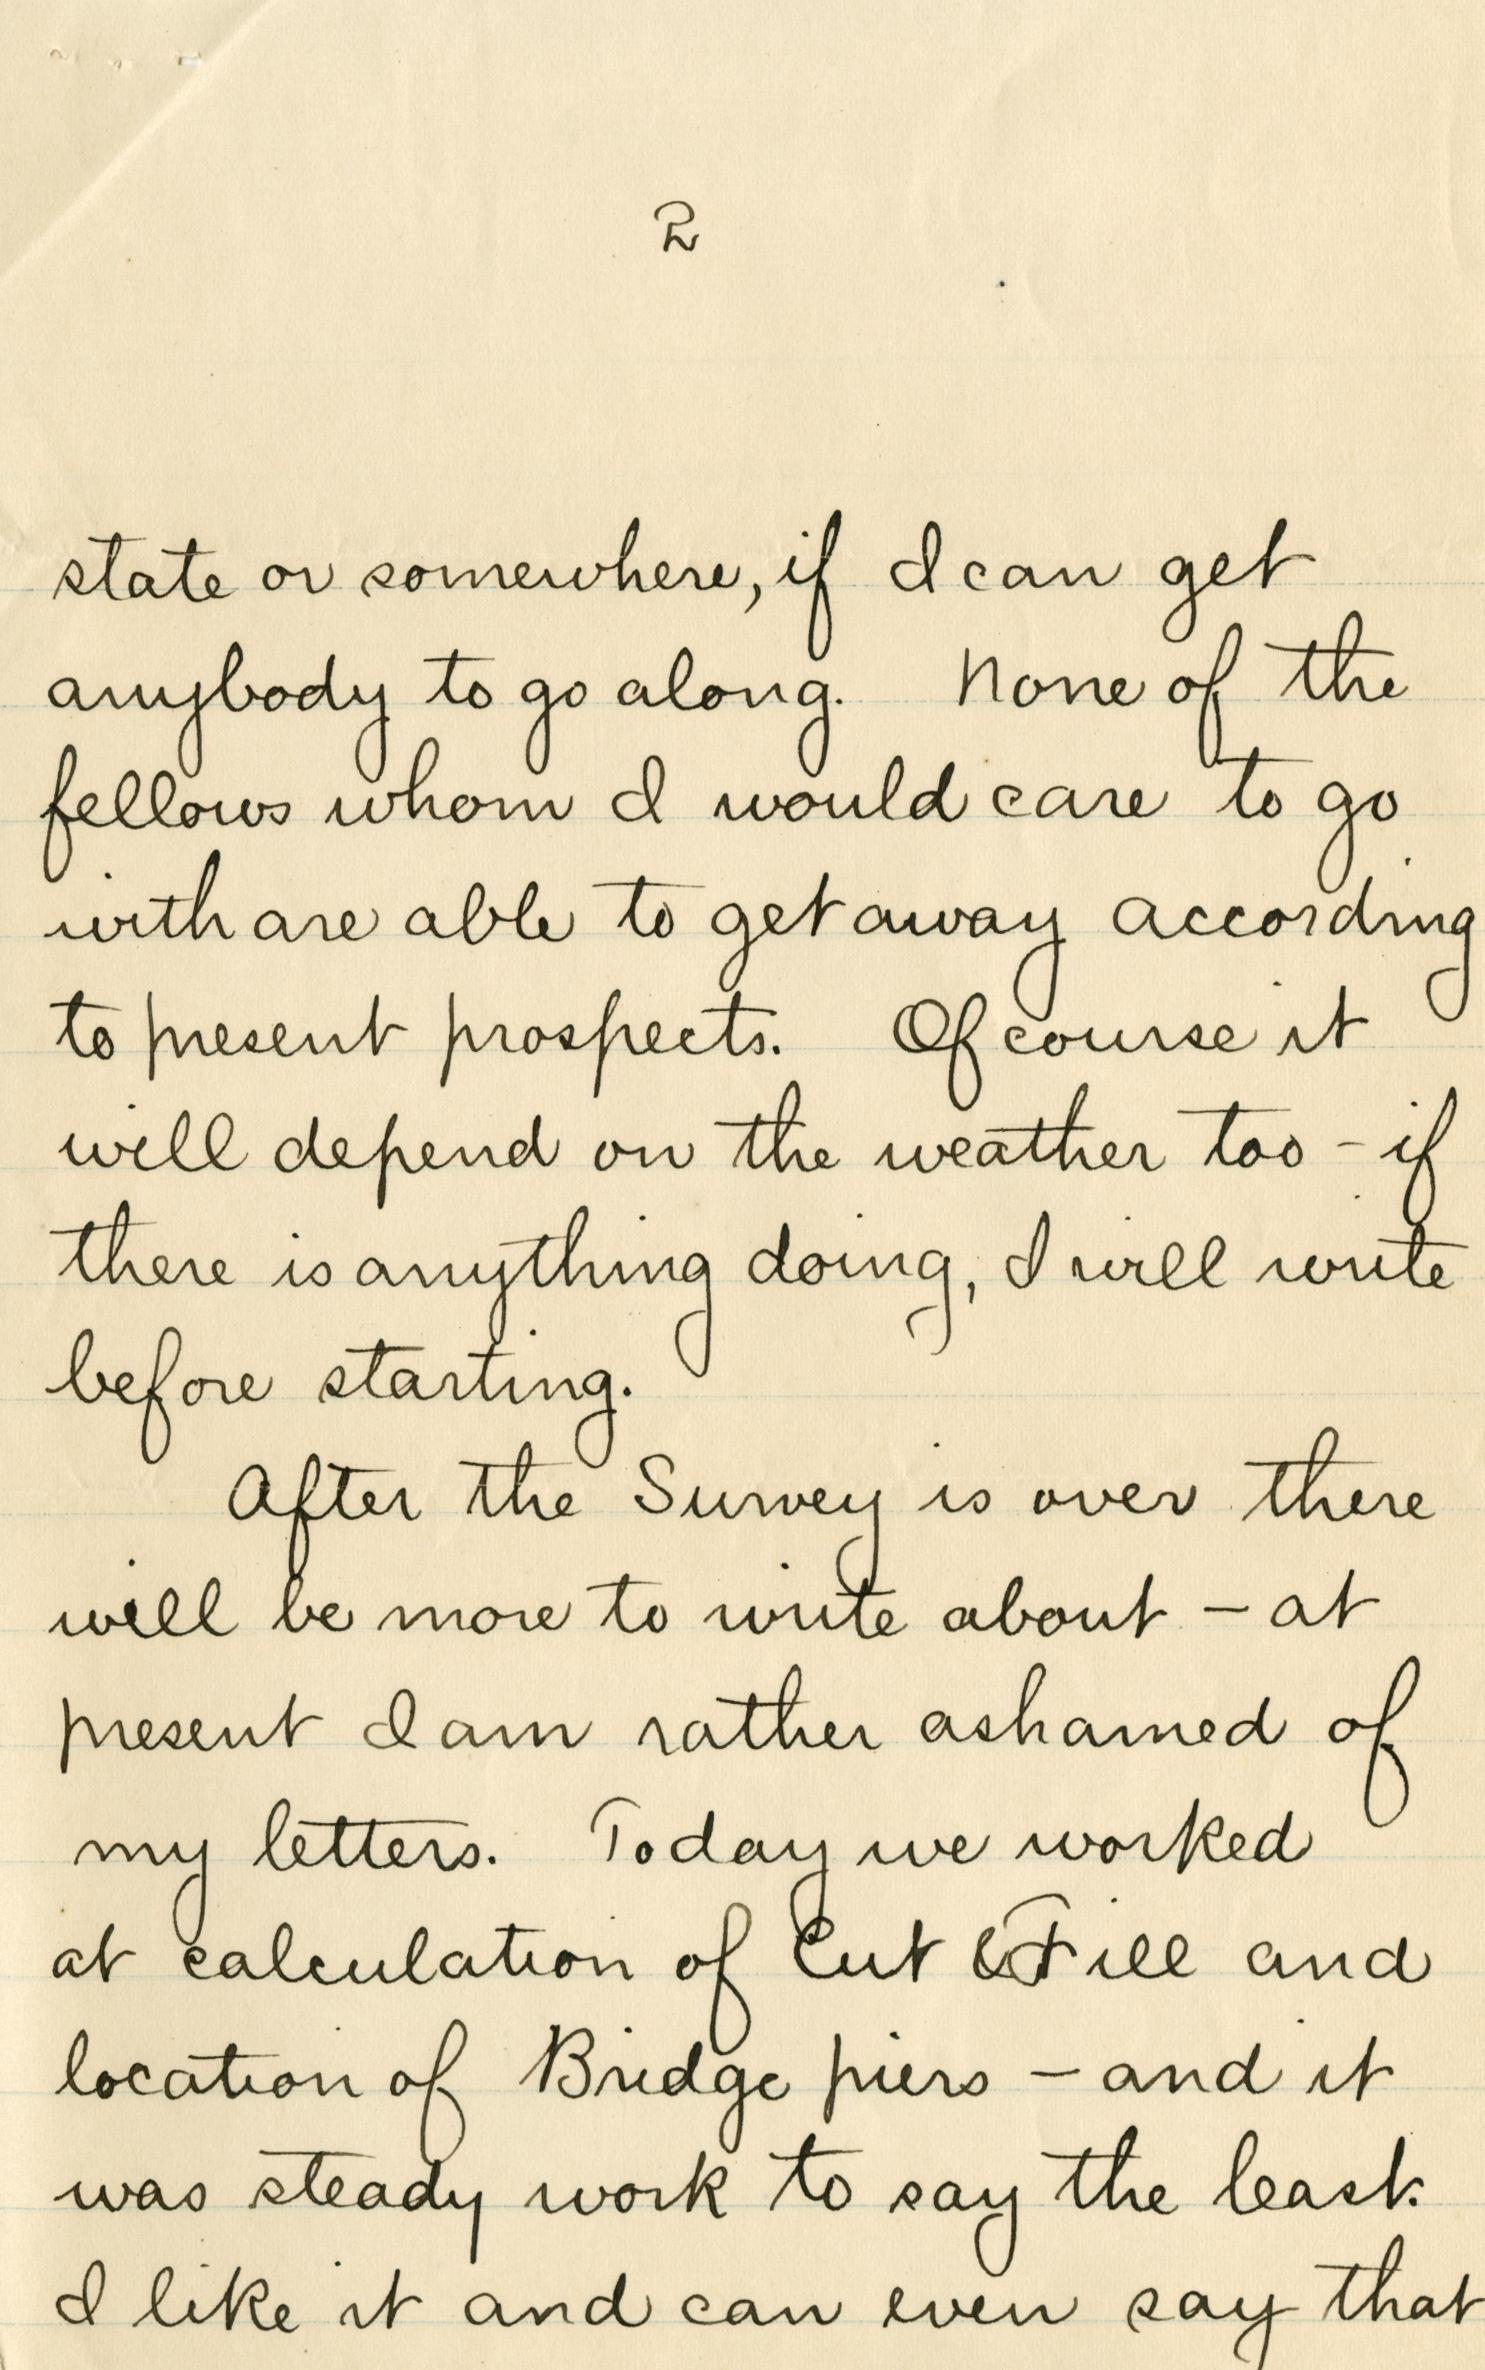 2
state or somewhere, if I can get
anybody to go along. None of the
fellows whom I would care to go
with are able to get away according
to present prospects. Of course it
will depend on the weather too - if
there is anything doing, I will write
before starting.
After the Survey is over there
will be more to write about - at
present I am rather ashamed of
my letters. Today we worked
at calculation of Cut & Fill and
location of Bridge piers - and it
was steady work to say the least.
I like it and can even say that